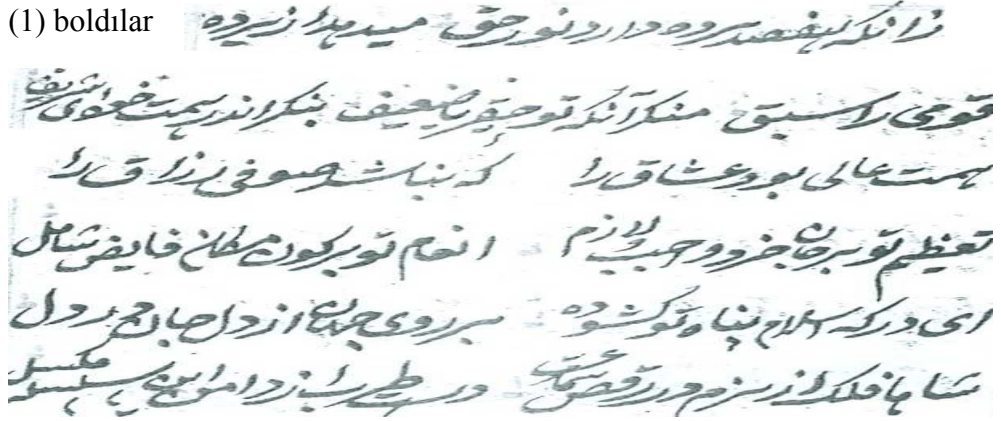 (1) boldılar زانکه هفصد پرده دارد نور حق میدهد از پرده
قومی را سبق منکر آنکه تو حقیر یا ضعیف بنکر اندر همت خود ای شریف
همت عالی بود عشاق را که نباشد صوفی رزاق را
تعظیم تو بر جان خرد واجب و لازم انعام تو بر کون مکان فایض شامل
ای درکه اسلام پناه تو کشوده بر روی جهان از دل جان دل
شاها فلک از بزم در رقص سماعست دست طرب از دامن این سلسله مکسل